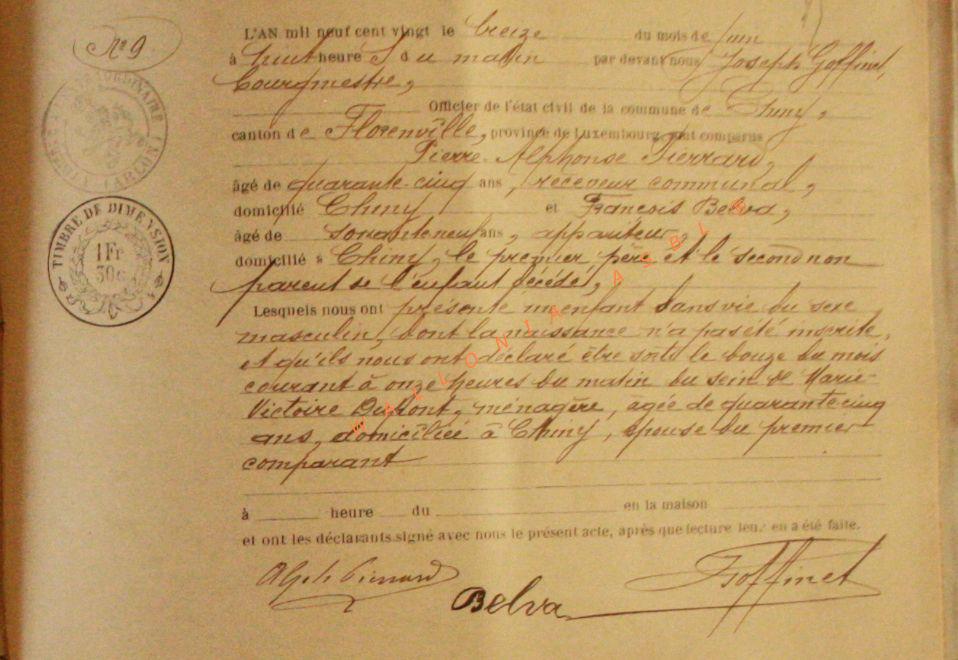 N° 9
L'AN mil neuf cent vingt le treize du mois de juin
à huit heure s du matin par devant nous Joseph Goffinet,
bourgmestre,
Officier de l'état civil de la commune de Chiny,
canton de Florenville, province de Luxembourg, ont comparus
Pierre Alphonse Pierrard,
âgé de quarante cinq ans, receveur communal,
domicilié Chiny et François Belva,
âgé de soixante neuf ans, appariteur,
domicilié à Chiny, le premier père et le second non
parent de l'enfant décédé,
Lesquels nous ont présenté un enfant sans vie du sexe
masculin, dont la naissance n'a pas été inscrite,
et qu'ils nous ont déclaré être sorti le douze du mois
courant à onze heures du matin du sein de Marie
Victoire Dumont, ménagère, âgée de quarante cinq
ans, domiciliée à Chiny, épouse du premier
comparant
à heure du en la maison
et ont les déclarants signé avec nous le présent acte, après que lecture leur en a été faite.
Alph Pierrard
Belva
J Goffinet
TIMBRE DE DIMENSION
1 Fr
30c
ARLON